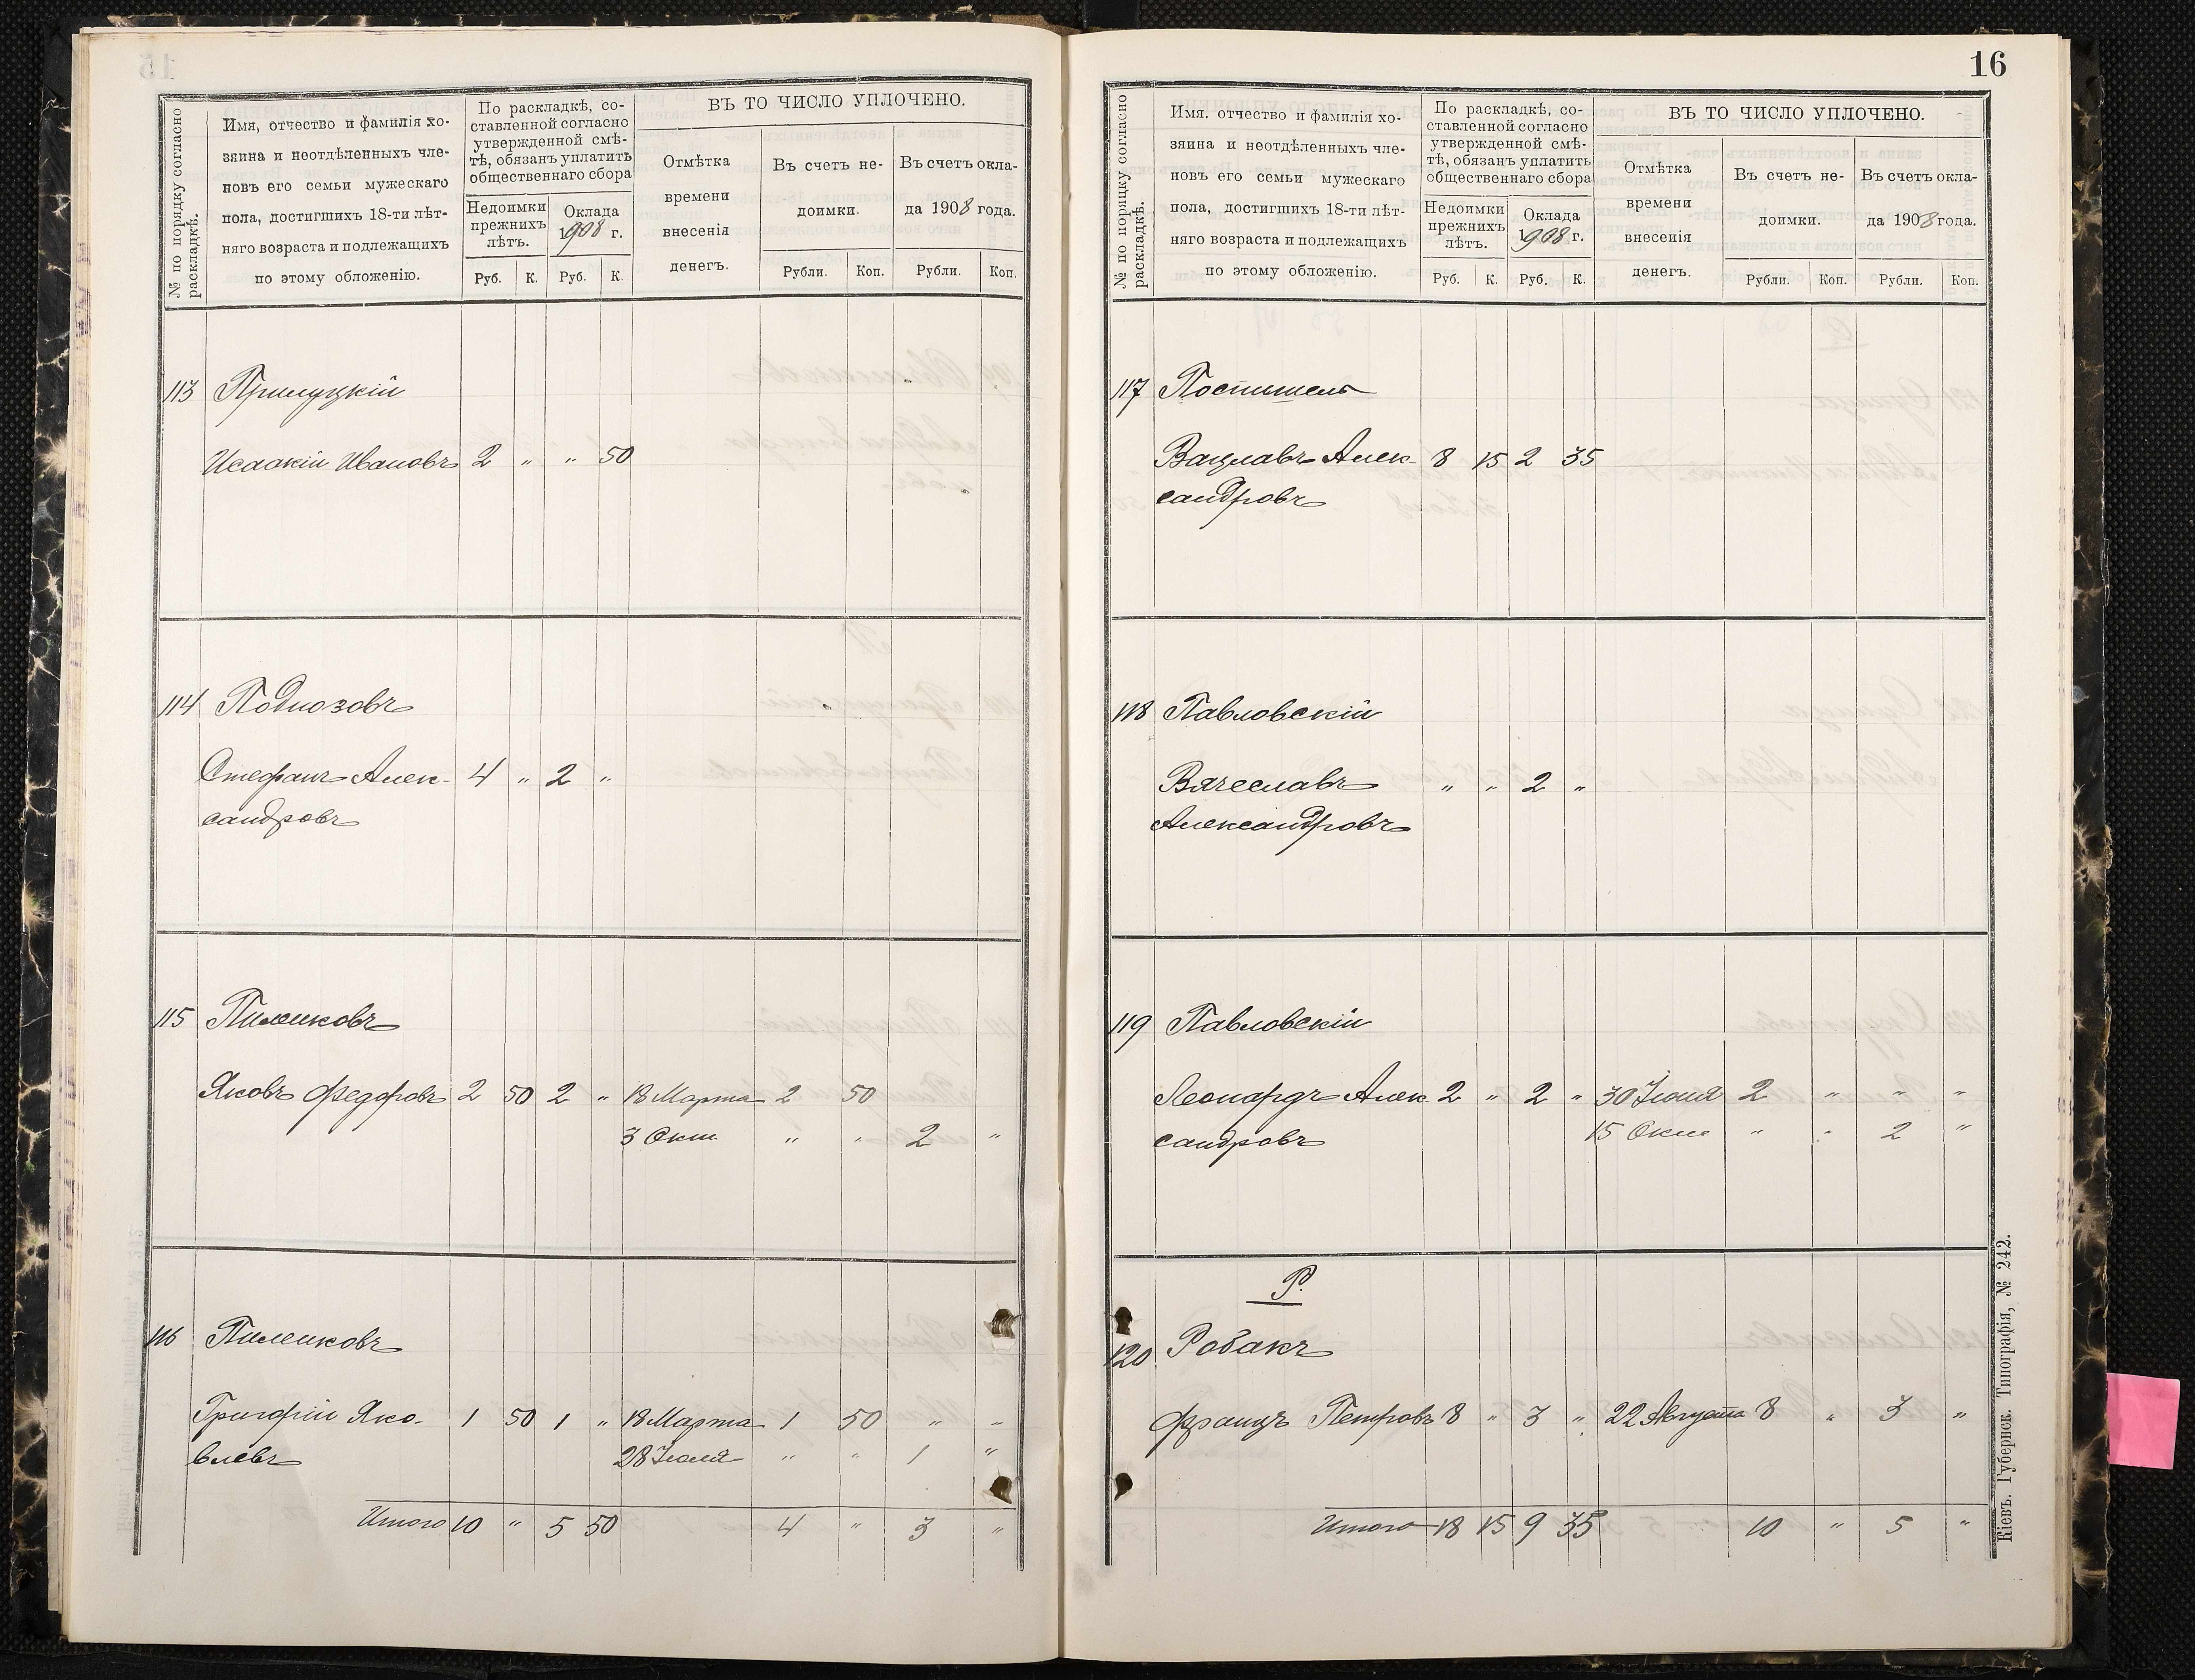 № по порядку согласно раскладкѣ.
Имя, отчество и фамилія хо-
зяина и неотдѣленныхъ чле-
новъ его семьи мужескаго
пола, достигшихъ 18-ти лѣт-
няго возраста и подлежащихъ
по этому обложенію.
По раскладкѣ, со-
ставленной согласно
утвержденной смѣ-
тѣ, обязанъ уплатить
общественнаго сбора
Недоимки
прежнихъ
лѣтъ.
Оклада
1908 г.
Руб. К. Руб. К.
ВЪ ТО ЧИСЛО УПЛОЧЕНО.
Отмѣтка
времени
внесенія
денегъ.
Въ счетъ не-
доимки.
Въ счетъ окла-
да 1908 года.
Рубли. Коп. Рубли. Коп.
113 Прилуцкій
Исаакій Ивановъ 2 " " 50
114 Подиозовъ
Стефанъ Алек- 4 " 2 "
сандровъ
115 Пиленковъ
Яковъ Федоровъ 2 50 2 " 18 Марта 2 50
3 Окт. " " 2 "
116 Пиленковъ
Григорій Яко- 1 50 1 " 18 Марта 1 50 " "
влевъ 28 Іюля " " 1 "
Итого 10 " 5 50 4 " 3 "
16
№ по порядку согласно раскладкѣ.
Имя, отчество и фамилія хо-
зяина и неотдѣленныхъ чле-
новъ его семьи мужескаго
пола, достигшихъ 18-ти лѣт-
няго возраста и подлежащихъ
по этому обложенію.
По раскладкѣ, со-
ставленной согласно
утвержденной смѣ-
тѣ, обязанъ уплатить
общественнаго сбора
Недоимки
прежнихъ
лѣтъ.
Оклада
1908 г.
Руб. К. Руб. К.
ВЪ ТО ЧИСЛО УПЛОЧЕНО.
Отмѣтка
времени
внесенія
денегъ.
Въ счетъ не-
доимки.
Въ счетъ окла-
да 1908 года.
Рубли. Коп. Рубли. Коп.
117 Поспишель
Вацлавъ Алек- 8 15 2 35
сандровъ
118 Павловскій
Вячеславъ " " 2 "
Александровъ
119 Павловскій
Леонардъ Алек 2 " 2 " 30 Іюня 2 " " "
сандровъ 15 Окт " " 2 "
Р.
120 Робакъ
Францъ Петровъ 8 " 3 " 22 Августа 8 " 3 "
Итого 18 15 9 35 10 " 5 "
Кіевъ. Губернск. Типографія, № 242.